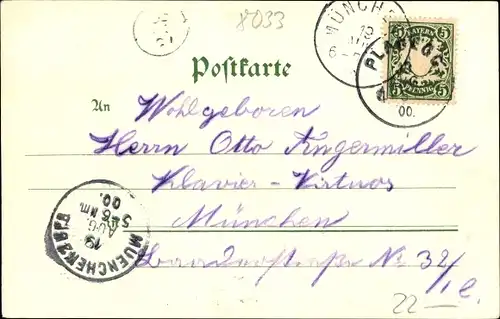 8033
MÜNCHEN
19
AUG
BAYERN
5 5
PFENNIG
PLANEGG
00.
Postkarte
An
Wohlgeboren
Herrn Otto Fingermiller
Klavier-Virtuos
München
Nr 32/
22
MUENCHEN 2 B.P.
19
AUG.
5-6 NM.
00.